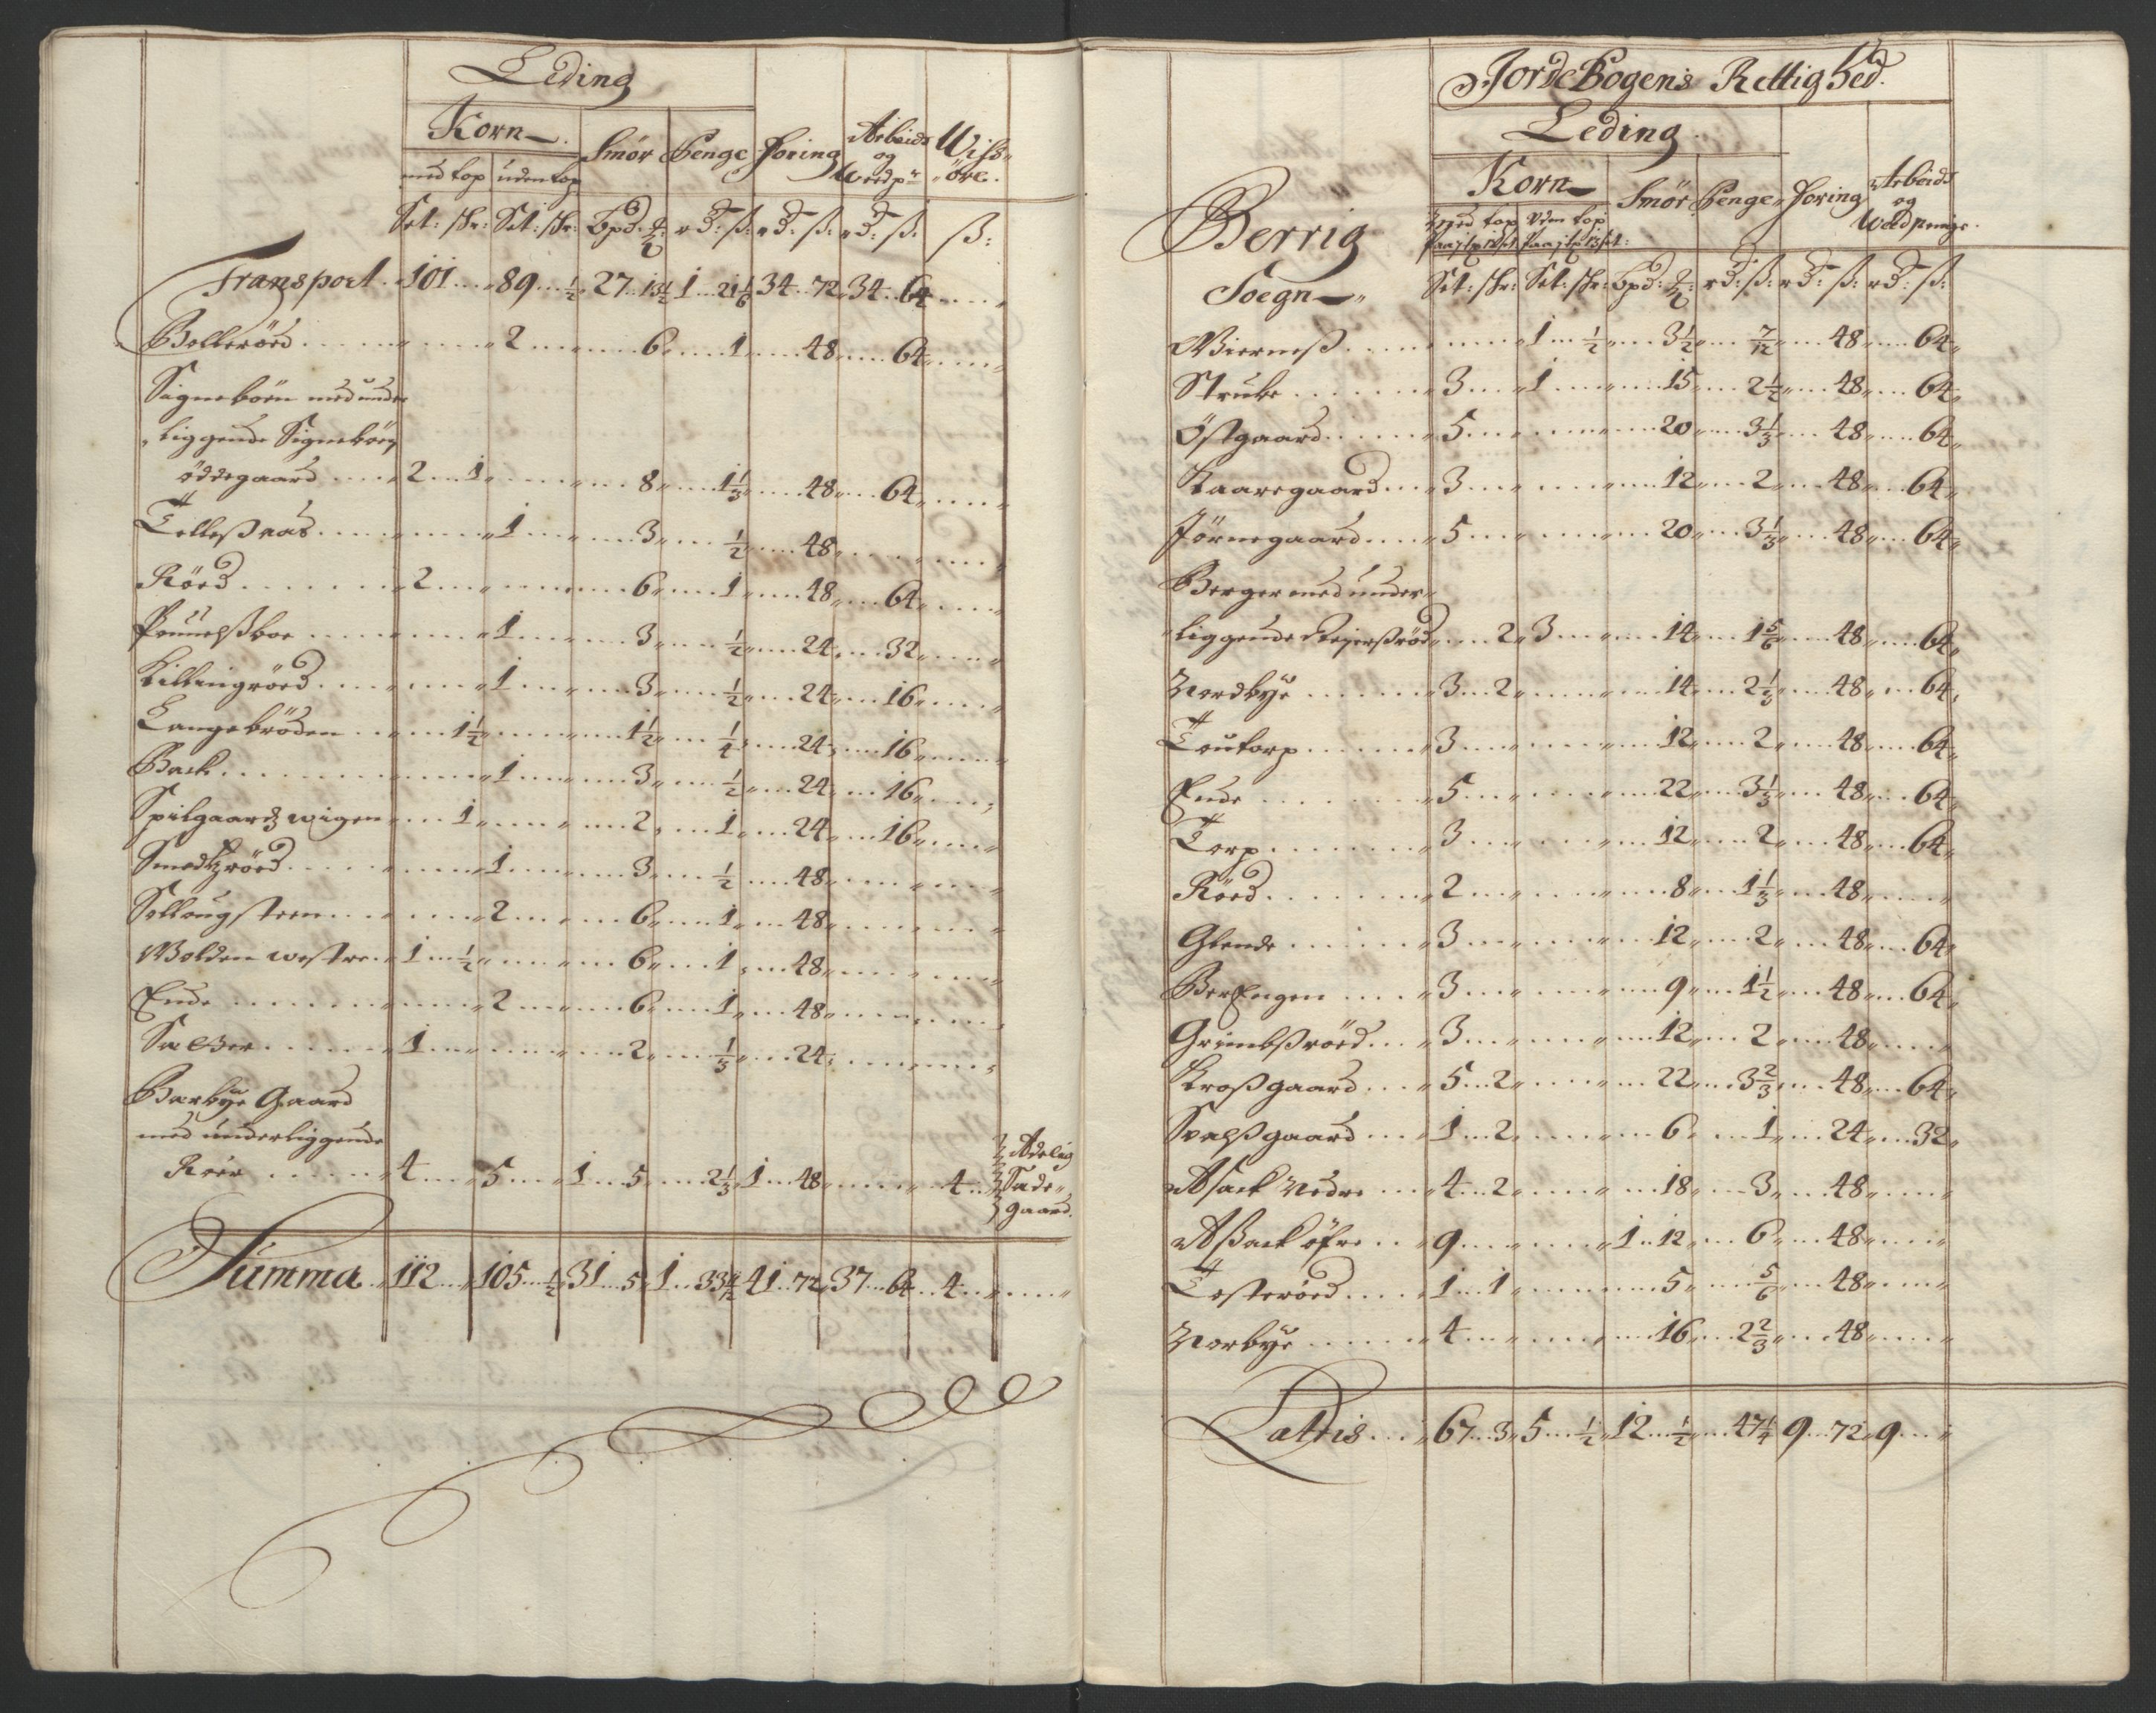 Leding
Korn
Smör Penge Foring Arbeids og Weedp: Wiss-öre.
med top uden top
Set: skr: Set: skr: bpd: rd: ß: rd: ß: rd: ß: ß:
Transport 101 „ 89 ½ 27 13½ 1 21⅙ 34 72 34 64 „
Bolleröed „ 2 „ 6 1 48 64 „
Signeböen med under
liggende Signeböen
öddegaard 2 1 „ 8 1⅓ 48 64 „
Tilleß aas „ 1 „ 3 ½ 48 „
Röed 2 „ 6 1 48 64 „
„ 1 „ 3 ½ 24 32 „
Killingröed „ 1 „ 3 ½ 24 16 „
Langebröden 1½ „ 1½ ¼ 24 16 „
Back „ 1 „ 3 ½ 24 16 „
Spilgaardz wigen 1 „ 2 1 24 16 „
Smedzröed „ 1 „ 3 ½ 48 „
Sollougsteen „ 2 „ 6 1 48 „
Wolden westre 1 ½ „ 6 1 48 „
Ende „ 2 „ 6 1 48 „
1 „ 2 ⅓ 24 „
Barbye Gaard
med underliggende
Röer 4 „ 5 „ 1 5 2⅓ 1 48 „ 4 Adelig Sæde-gaard.
Summa 112 „ 105 ½ 31 5 1 41 72 37 64 4 „
JordeBogens Rettighed.
Leding
Korn
Smör Penge Foring Arbeids og Weedpenge.
Med top Uden top
Berrig
Soegn
Set: skr: Set: skr: bpd: rd: ß: rd: ß: rd: ß:
Wierneß „ 1 ½ 3½ 7/12 48 64
Struke 3 „ 1 „ 15 2½ 48 64
Östgaard 5 „ 20 3⅓ 48 64
Kaaregaard 3 „ 12 2 48 64
Jörnegaard 5 „ 20 3⅓ 48 64
Berger med under-
liggende Rejersröd 2 3 „ 14 1⅚ 48 64
Nordbye 3 2 „ 14 2⅓ 48 64
Toutorp 3 „ 12 2 48 64
Ende 5 „ 22 3⅓ 48 64
Torp 3 „ 12 2 48 64
Röed 2 „ 8 1⅓ 48 „
Glende 3 „ 12 2 48 64
BerEngen 3 „ 9 1½ 48 64
Grimbßröed 3 „ 12 2 48 „
Kroßgaard 5 2 „ 22 3⅔ 48 64
Svalßgaard 1 2 „ 6 1 24 32
Asack Nedre 4 2 „ 18 3 48 „
Aßack öfre 9 „ 1 12 6 48 „
Tosteröed 1 1 „ 5 ⅚ 48 „
Norbye 4 „ 16 2⅔ 48 „
Latris 67 3 5 ½ 12 ½ 47¼ 9 72 9 „